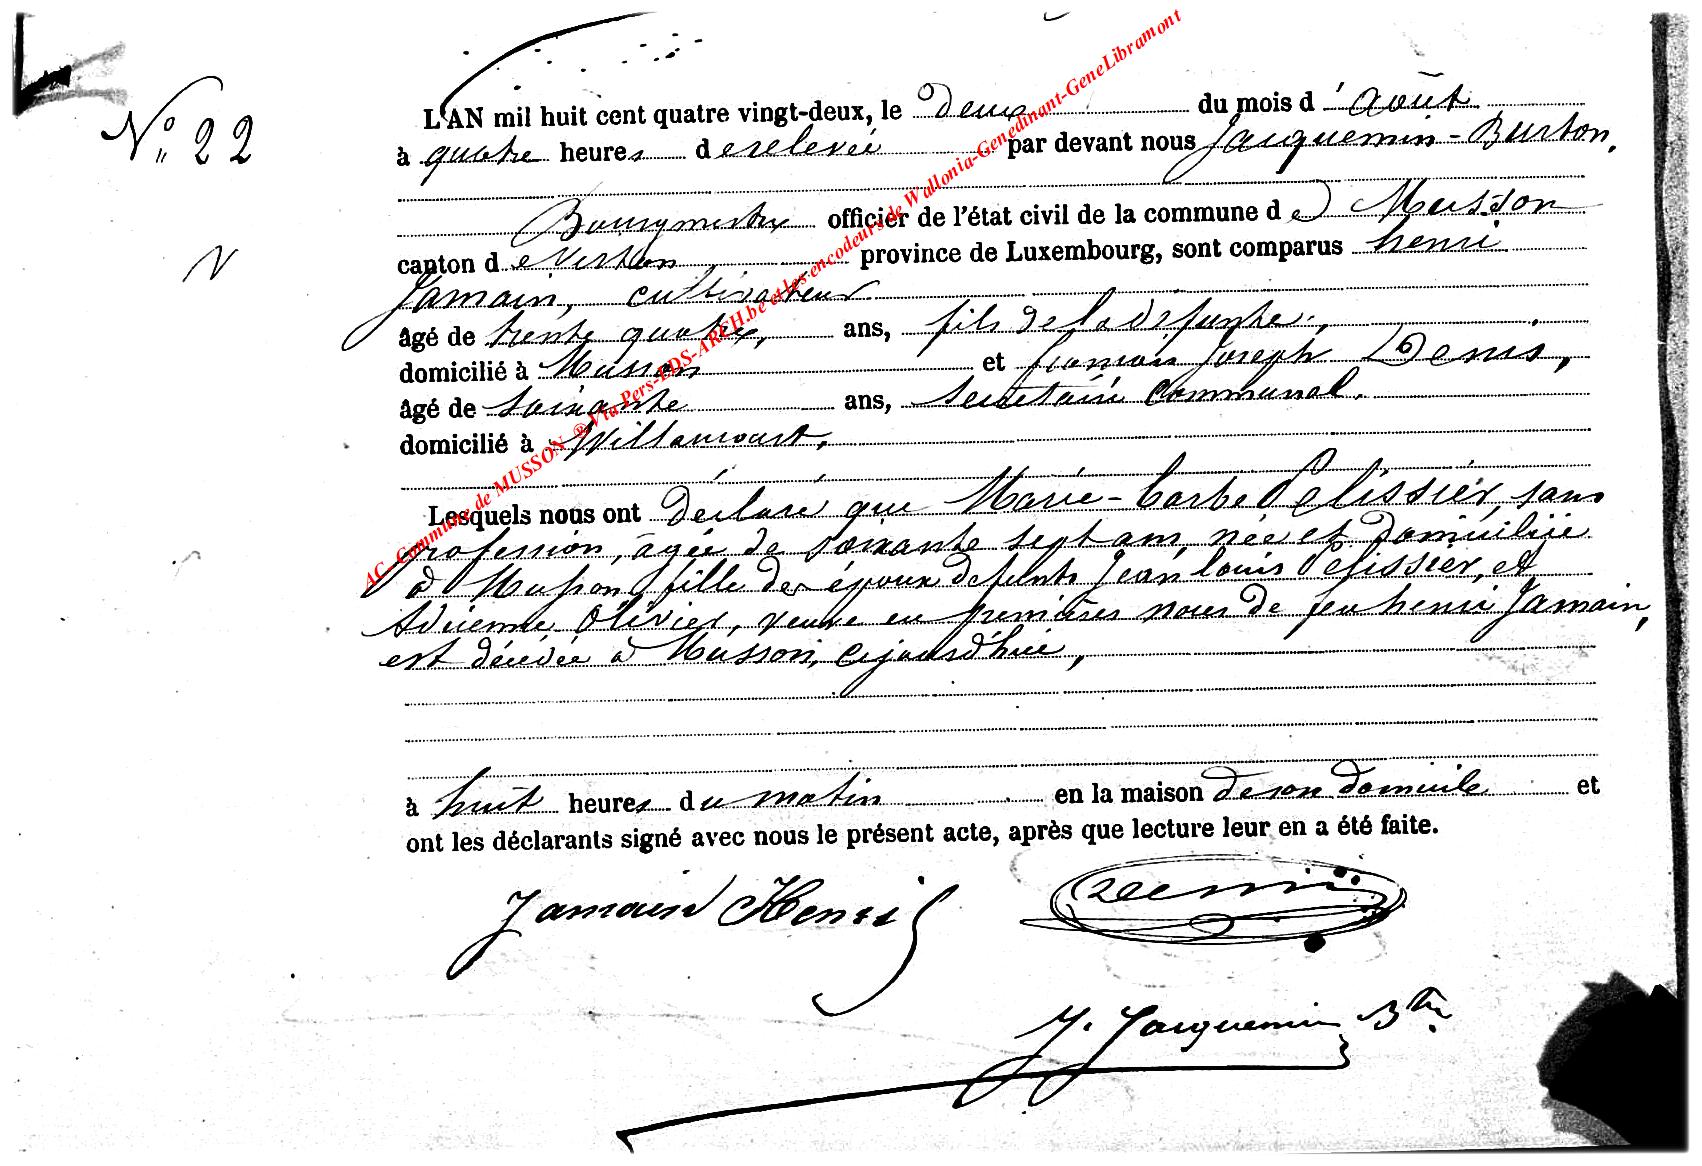 N° 22
V
L'AN mil huit cent quatre vingt-deux, le deux du mois d'août
à quatre heures de relevée par devant nous Jacquemin-Burton,
Bourgmestre officier de l'état civil de la commune de Musson
canton de Virton province de Luxembourg, sont comparus henri
Jamain, cultivateur
âgé de trente quatre, ans, fils de la defunte,
domicilié à Musson et françois Joseph Denis,
âgé de soixante ans, secrétaire communal.
domicilié à Willancourt,
Lesquels nous ont déclaré que Marie-barbe Pelissier, sans
profession, agée de soixante sept ans, née et domiciliée
à Musson, fille des époux defunts Jean louis Pelissier, et
olivier, veuve en premières noces de feu henri Jamain,
est décédée à Musson, cejourd'hui,
à huit heures du matin en la maison de son domicile et
ont les déclarants signé avec nous le présent acte, après que lecture leur en a été faite.
Jamain Henri Denis
J. Jacquemin Btn
AC- Commune de MUSSON ® Via Pers-PDS-ARCH.be et les encodeurs de Wallonia-Genedinant-GeneLibramont